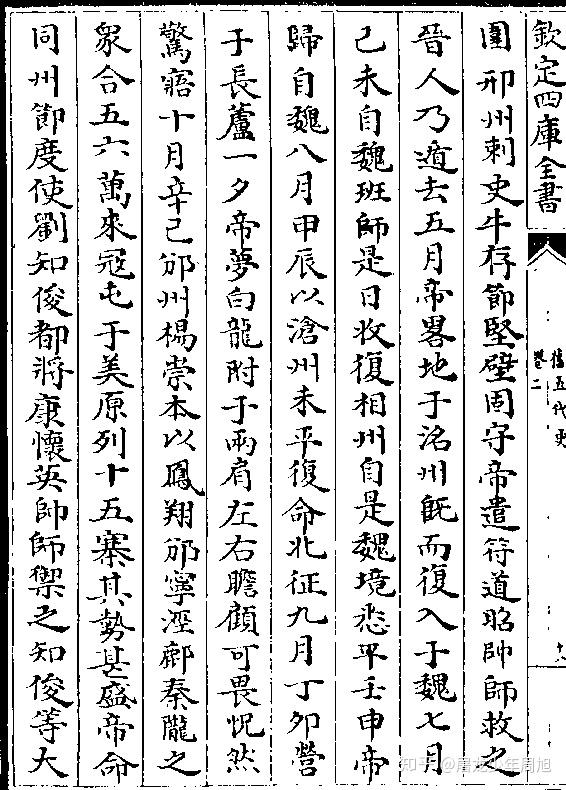 欽定四庫全書
舊五代史
卷二
十八
圍邢州刺史牛存節堅壁固守帝遣符道昭帥師救之
晉人乃遁去五月帝畧地于洺州旣而復入于魏七月
己未自魏班師是日收復相州自是魏境悉平壬申帝
歸自魏八月甲辰以滄州未平復命北征九月丁卯營
于長蘆一夕帝夢白龍附于兩肩左右瞻顧可畏怳然
驚寤十月辛巳邠州楊崇本以鳳翔邠寧涇鄜秦隴之
衆合五六萬來寇屯于美原列十五寨其勢甚盛帝命
同州節度使劉知俊都將康懷英帥師禦之知俊等大
知乎 @屠龙少年周旭